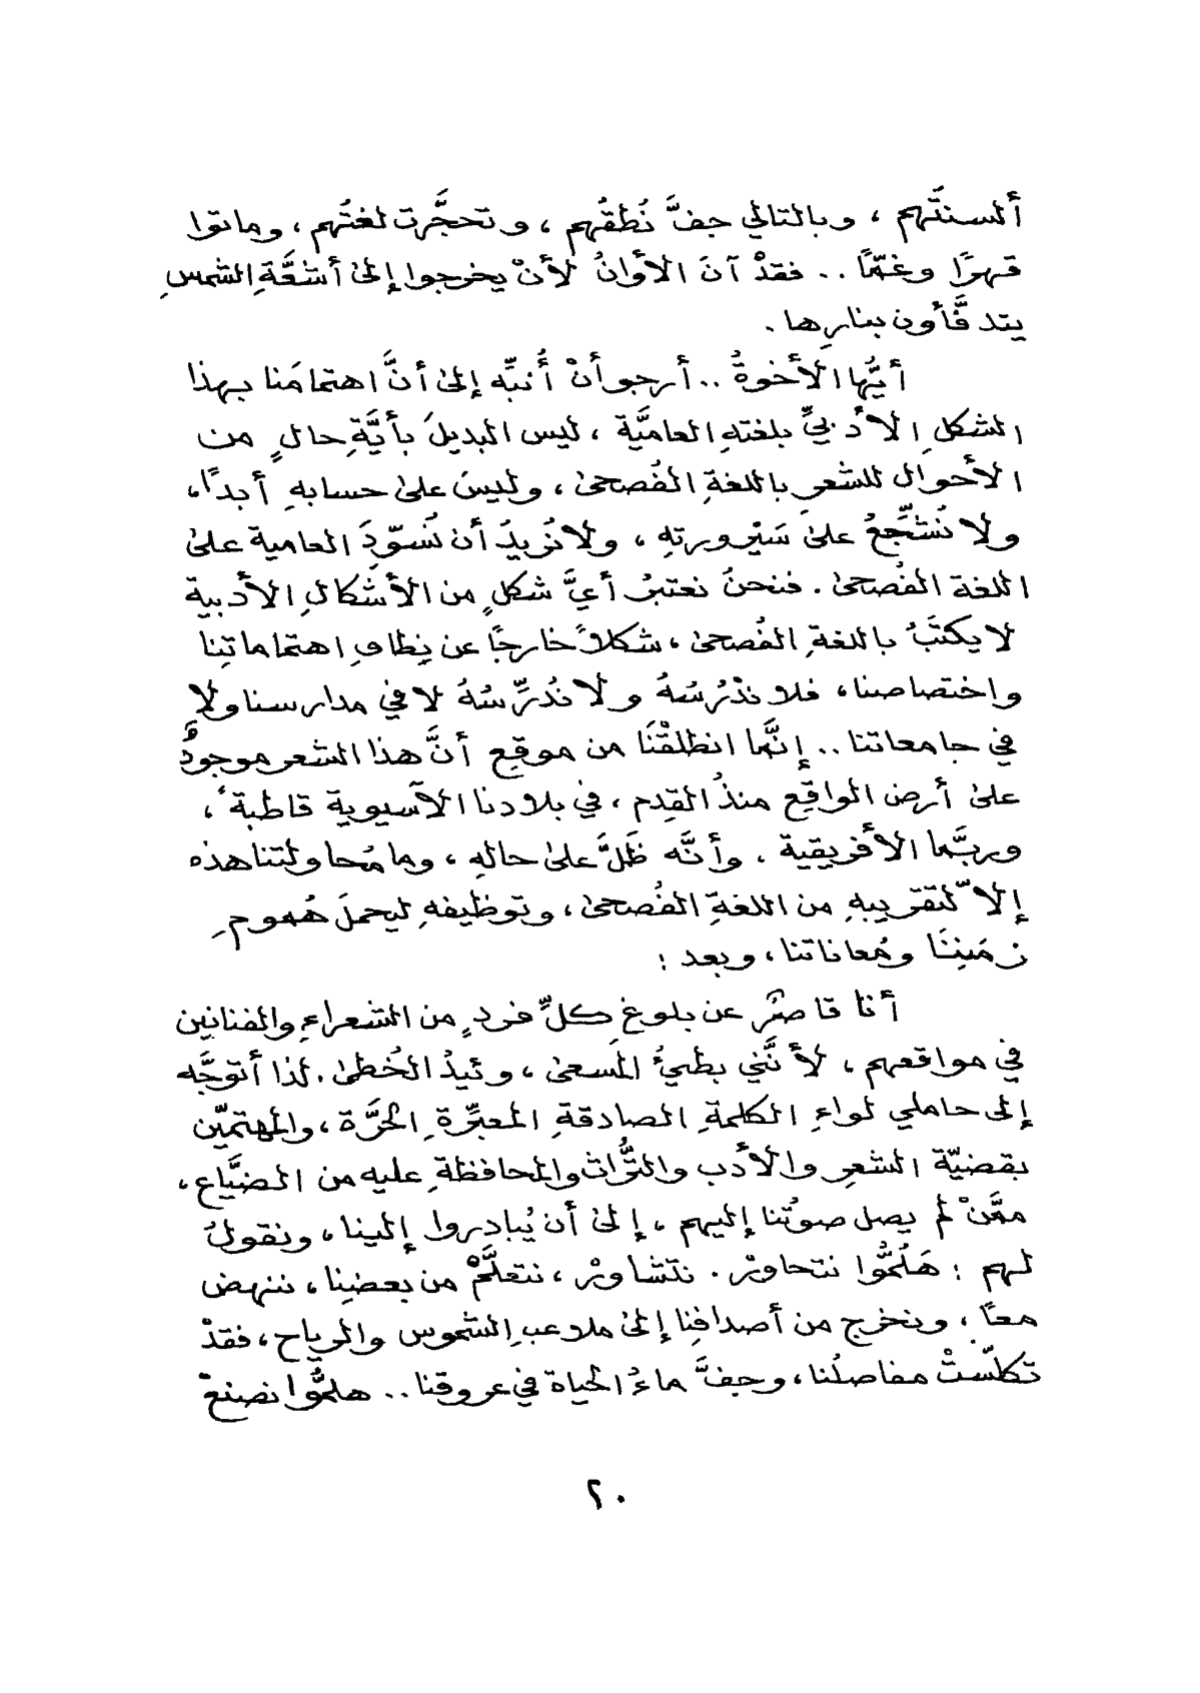 ألسنتَهم ، وبالتالي جفَّ نُطقُهم ، وتحجَّرت لغتُهم ، وماتوا
قهرًا وغمًّا .. فقدْ آنَ الأوانُ لأنْ يخرجوا إلىٰ أشعَّةِ الشمسِ
يتدفَّأون بنارِها .
أيُّها الأخوةُ .. أرجو أنْ أُنبِّه إلىٰ أنَّ اهتمامَنا بهذا
الشكلِ الأدبيِّ بلغتهِ العاميَّة ، ليس البديلَ بأيَّةِ حالٍ من
الأحوال للشعرِ باللغةِ الفُصحىٰ ، وليسَ علىٰ حسابهِ أبدًا ،
ولا نُشجِّعُ علىٰ سَيْرورتهِ ، ولا نُريدُ أن نُسوِّدَ العامية علىٰ
اللغة الفُصحىٰ . فنحنُ نعتبرُ أيَّ شكلٍ من الأشكالِ الأدبية
لا يكتَبُ باللغةِ الفُصحىٰ ، شكلاً خارجًا عن نِطاقِ اهتماماتِنا
واختصاصنا ، فلا نذْرُسُهُ ولا نُدرِّسُهُ لا في مدارسنا ولا
في جامعاتنا .. إنَّما انطلقْنَا من موقِع أنَّ هذا الشعر موجودٌ
علىٰ أرض الواقِع منذُ القِدم ، في بلادنا الآسيوية قاطبةً ،
وربَّما الأفريقية . وأنَّه ظَلَّ علىٰ حالهِ ، وما مُحاولتنا هذه
إلاّ لتقريبهِ من اللغةِ الفُصحىٰ ، وتوظيفهِ ليحملَ هُمومِ
زمَنِنَا ومُعاناتنا ، وبعد :
أنا قاصرٌ عن بلوغِ كلِّ فردٍ من الشعراءِ والفنانين
في مواقعهم ، لأنَّني بطيءُ المسعىٰ ، وئيدُ الخُطىٰ . لذا أتوجَّه
إلى حاملي لواءِ الكلمةِ الصادقةِ المعبِّرةِ الحُرَّة ، والمهتمّين
بقضيّة الشعرِ والأدب والتُّراث والمحافظةِ عليه من الضيَّاع ،
ممَّنْ لم يصل صوتُنا إليهم ، إلىٰ أن يُبادروا إلينا ، ونقولُ
لهم : هَلُمُّوا نتحاورْ . نتشاورْ ، نتعلَّمْ من بعضِنا ، ننهض
معًا ، ونخرج من أصدافِنا إلىٰ ملاعبِ الشموس والرياح ، فقدْ
تكلّستْ مفاصلُنا ، وجفَّ ماءُ الحياة في عروقنا .. هلمُّوا نصنعْ
٢٠